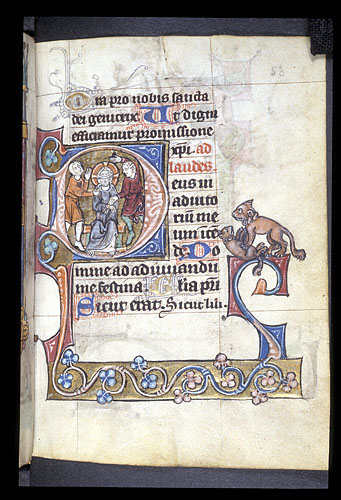 Ora pro nobis sancta
dei genitrix Ut digni
efficiamur promissione
xpi. ad
laudes
eus in
adiuto
rium me
um inte
de Do
mine ad adiuuandu
me festina Glia pri
Sicut erat. Sicut lili.
53